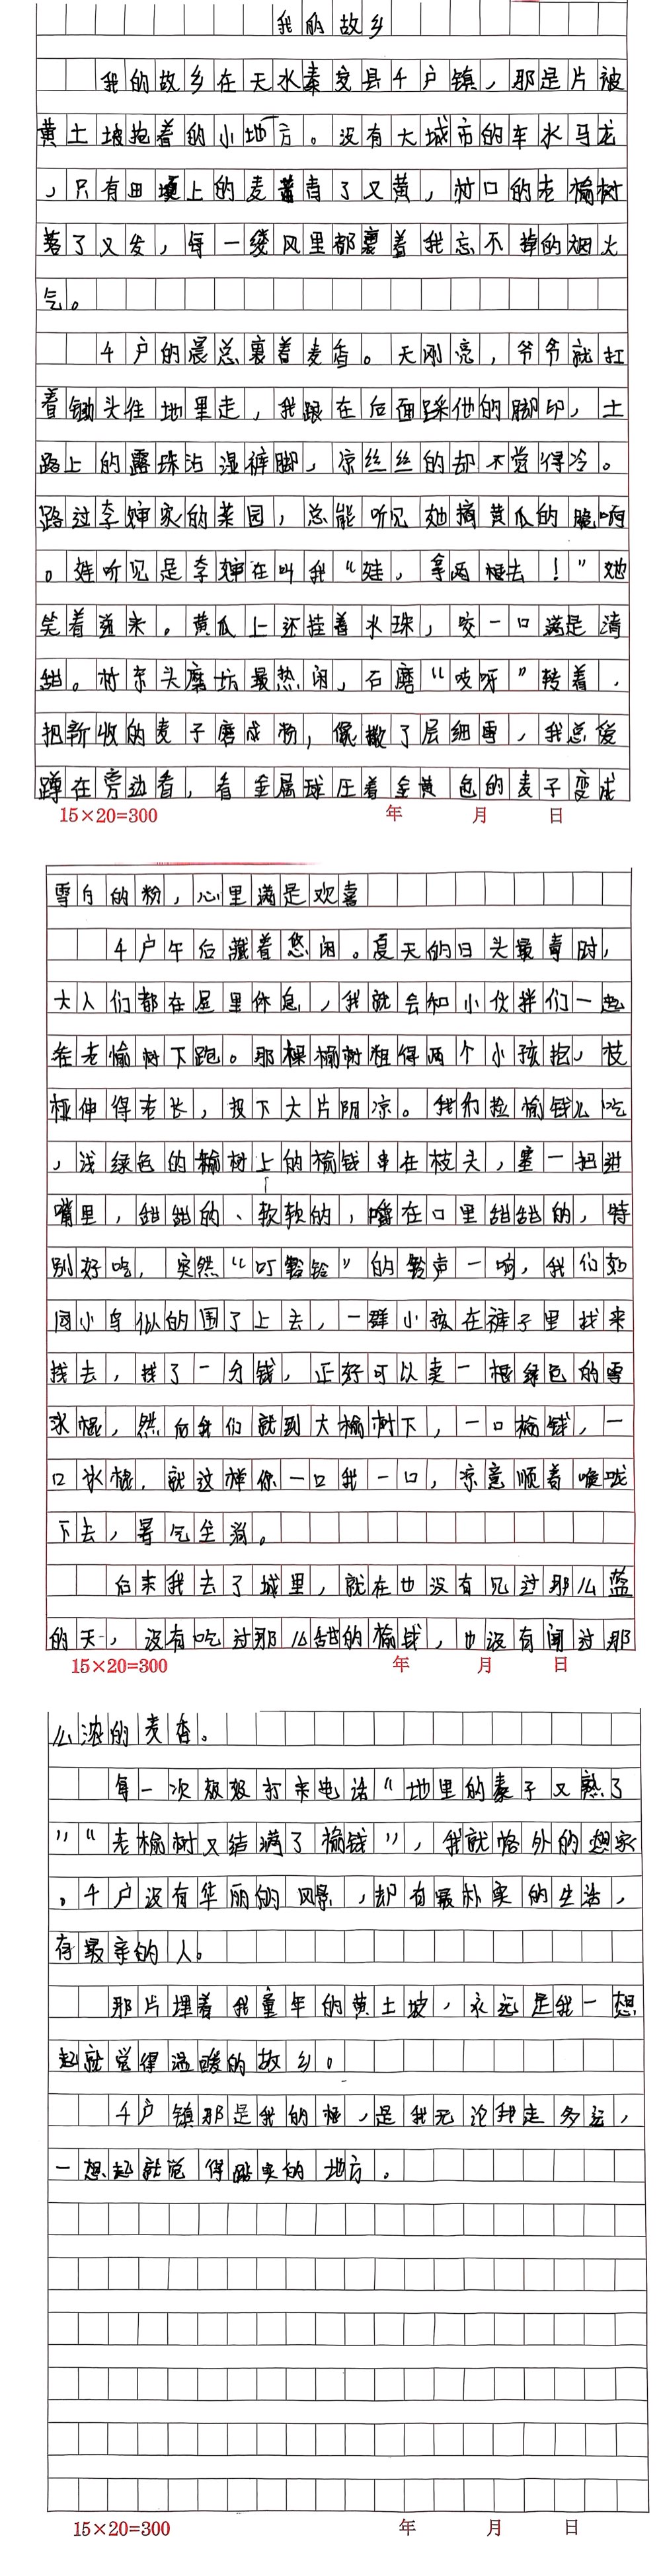 我的故乡
我的故乡在天水秦安县千户镇，那是片被
黄土坡抱着的小地方。没有大城市的车水马龙
，只有田埂上的麦苗青了又黄，村口的老榆树
落了又发，每一缕风里都裹着我忘不掉的烟火
气。
千户的晨总裹着麦香。天刚亮，爷爷就扛
着锄头往地里走，我跟在后面踩他的脚印，土
路上的露珠沾湿裤脚，凉丝丝的却不觉得冷。
路过李婶家的菜园，总能听见她摘黄瓜的脆响
。娃听见是李婶在叫我“娃，拿两根去！”她
笑着递来。黄瓜上还挂着水珠，咬一口满是清
甜。村东头磨坊最热闹，石磨“吱呀”转着，
把新收的麦子磨成粉，像撒了层细雪，我总爱
蹲在旁边看，看金属球压着金黄色的麦子变成
15×20=300 年 月 日
雪白的粉，心里满是欢喜
千户午后藏着悠闲。夏天的日头最毒时，
大人们都在屋里休息，我就会和小伙拌们一起
在老愉树下跑。那棵榆树粗得两个小孩抱，枝
桠伸得老长，投下大片阴凉。我们捡榆钱儿吃
，浅绿色的榆树上的榆钱串在枝头，塞一把进
嘴里，甜甜的、软软的，嚼在口里甜甜的，特
别好吃，突然“叮铃铃”的铃声一响，我们如
同小鸟似的围了上去，一群小孩在裤子里找来
找去，找了一分钱，正好可以卖一根绿色的雪
冰棍，然后我们就到大榆树下，一口榆钱，一
口冰棍，就这样你一口我一口，凉意顺着喉咙
下去，暑气全消。
后来我去了城里，就在也没有见过那么蓝
的天，没有吃过那么甜的榆钱，也没有闻过那
15×20=300 年 月 日
么浓的麦香。
每一次叔叔打来电话“地里的麦子又熟了
”“老榆树又结满了榆钱”，我就恪外的想家
。千户没有华丽的风景，却有最朴实的生活，
有最亲的人。
那片埋着我童年的黄土坡，永远是我一想
起就觉得温暖的故乡。
千户镇那是我的根，是我无论我走多远，
一想起就觉得踏实的地方。
15×20=300 年 月 日